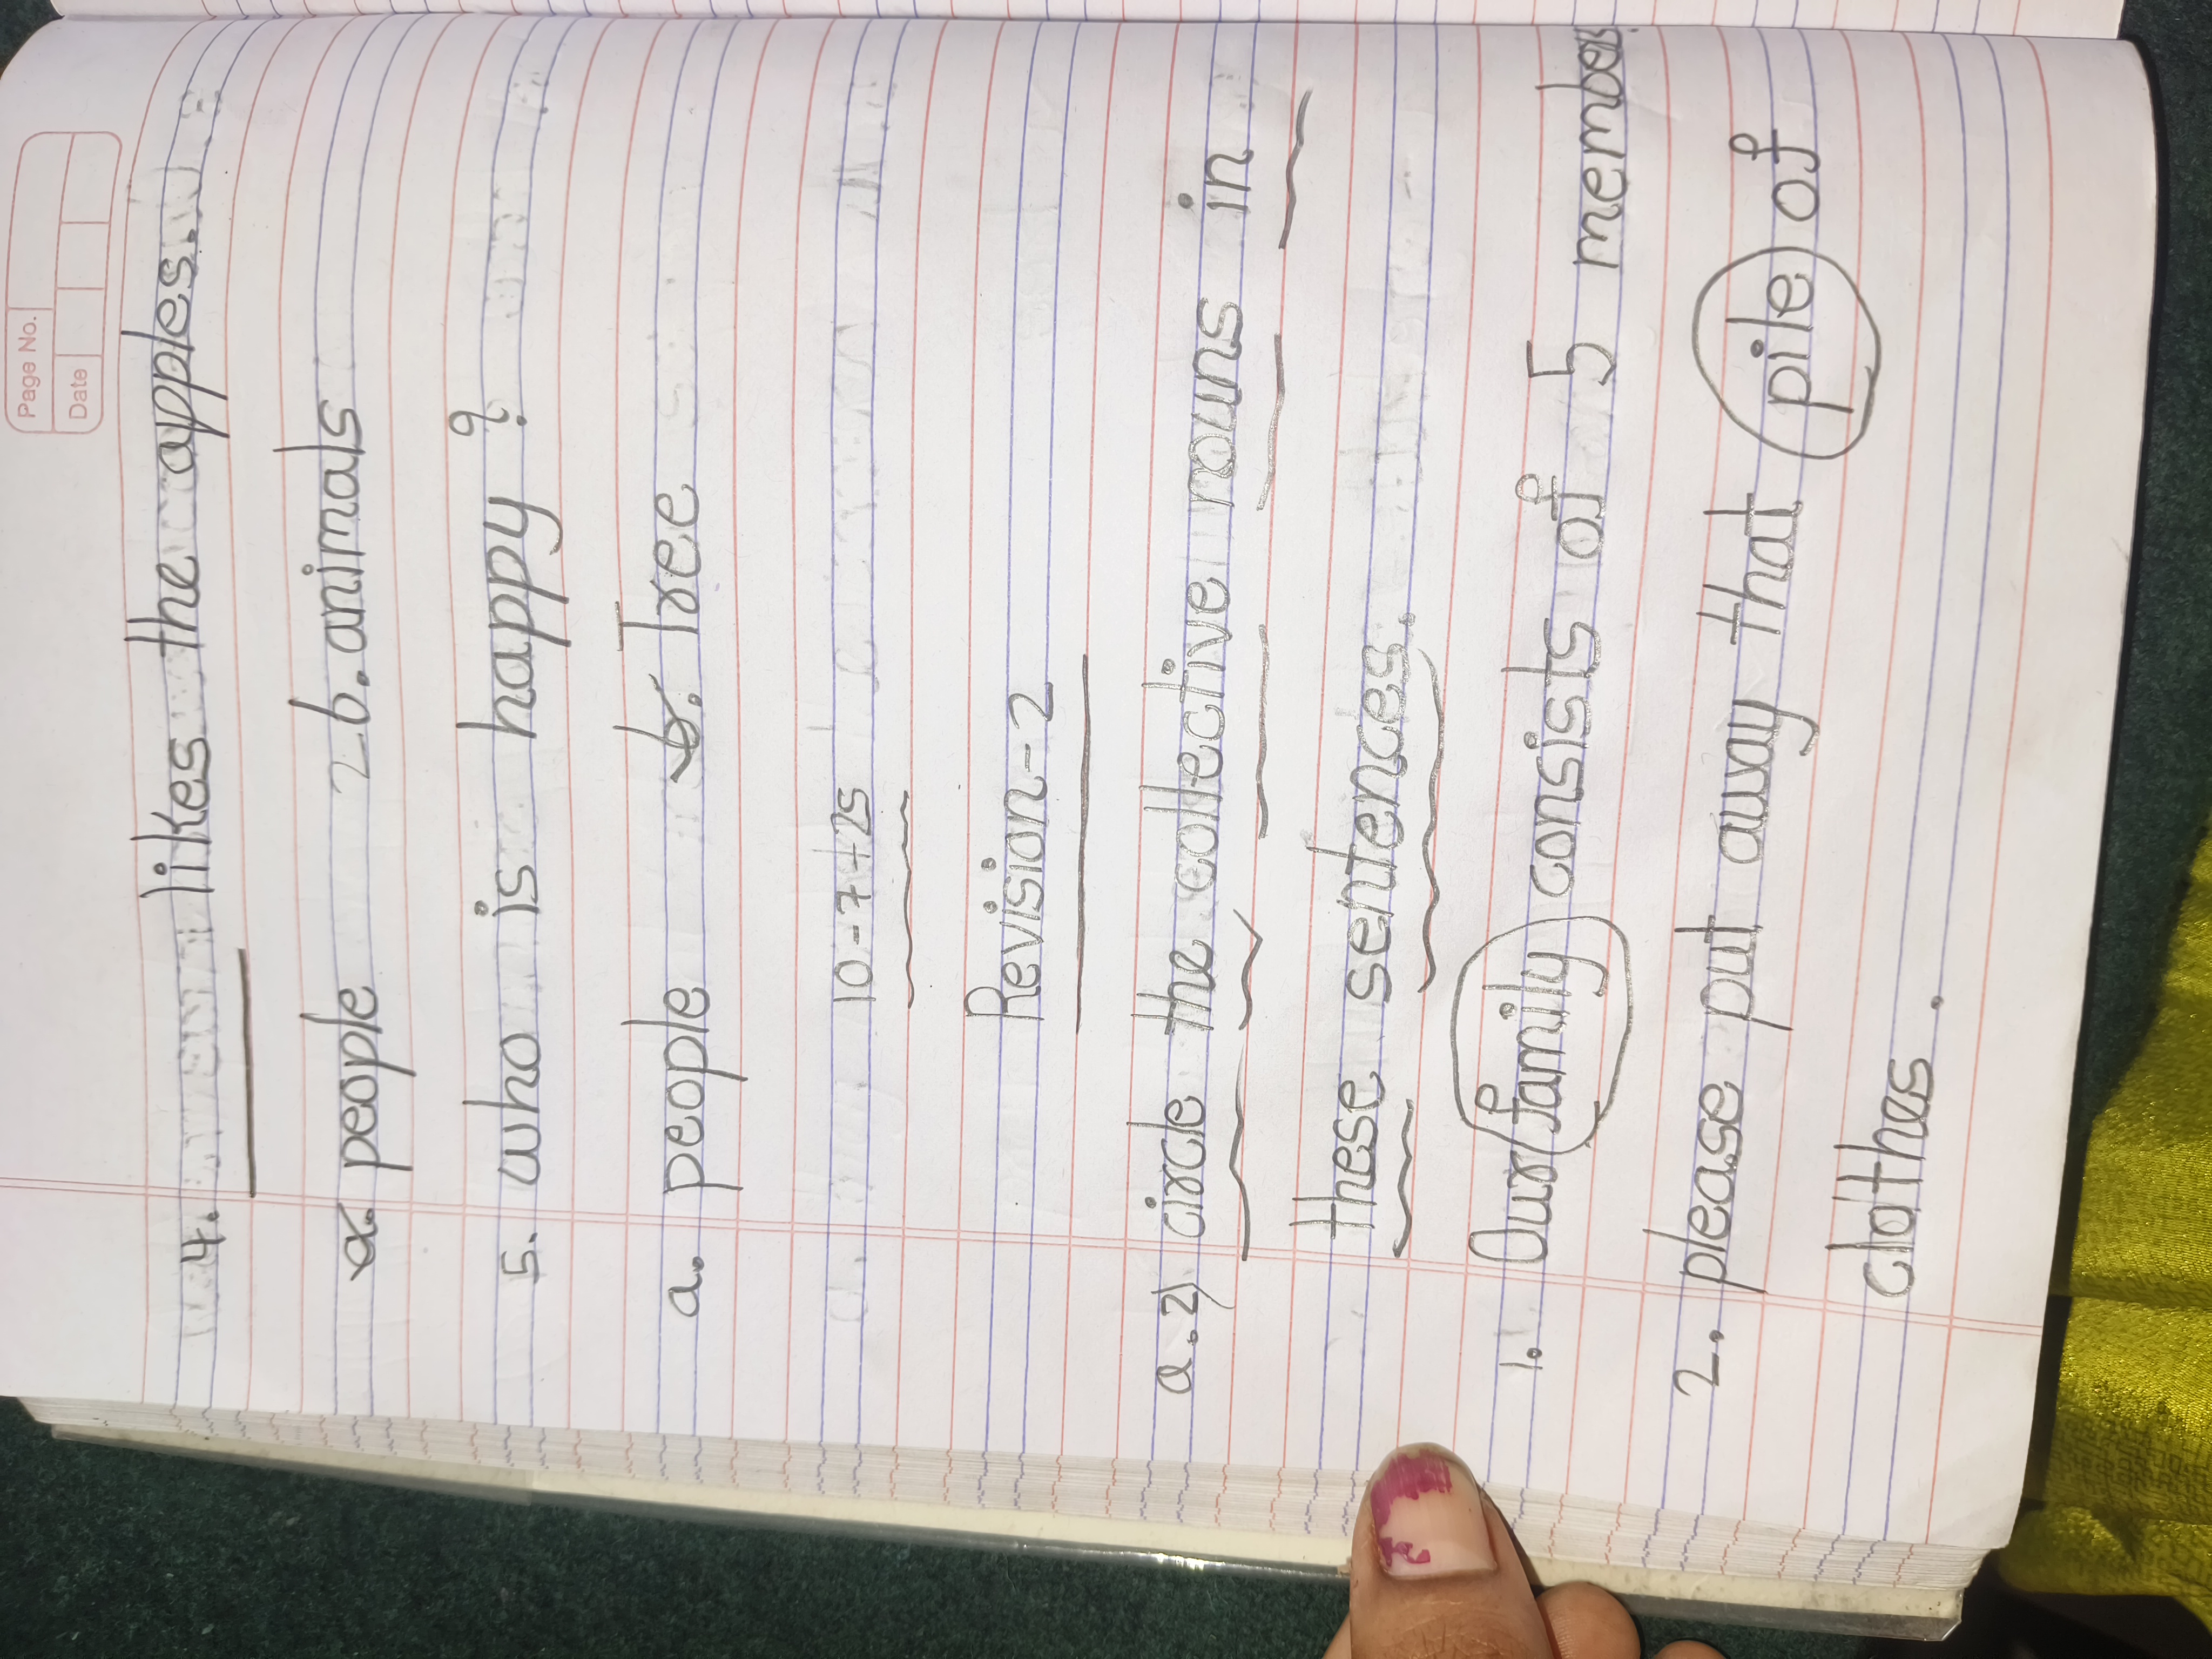 Page No.
Date
4. ______ likes the apples.
a. people b. animals
5. who is happy ?
a. people b. Tree
10-7-25
Revision-2
a.2) circle the collective nouns in
these sentences.
1. Our family consists of 5 members
2. please put away that pile of
clothes.